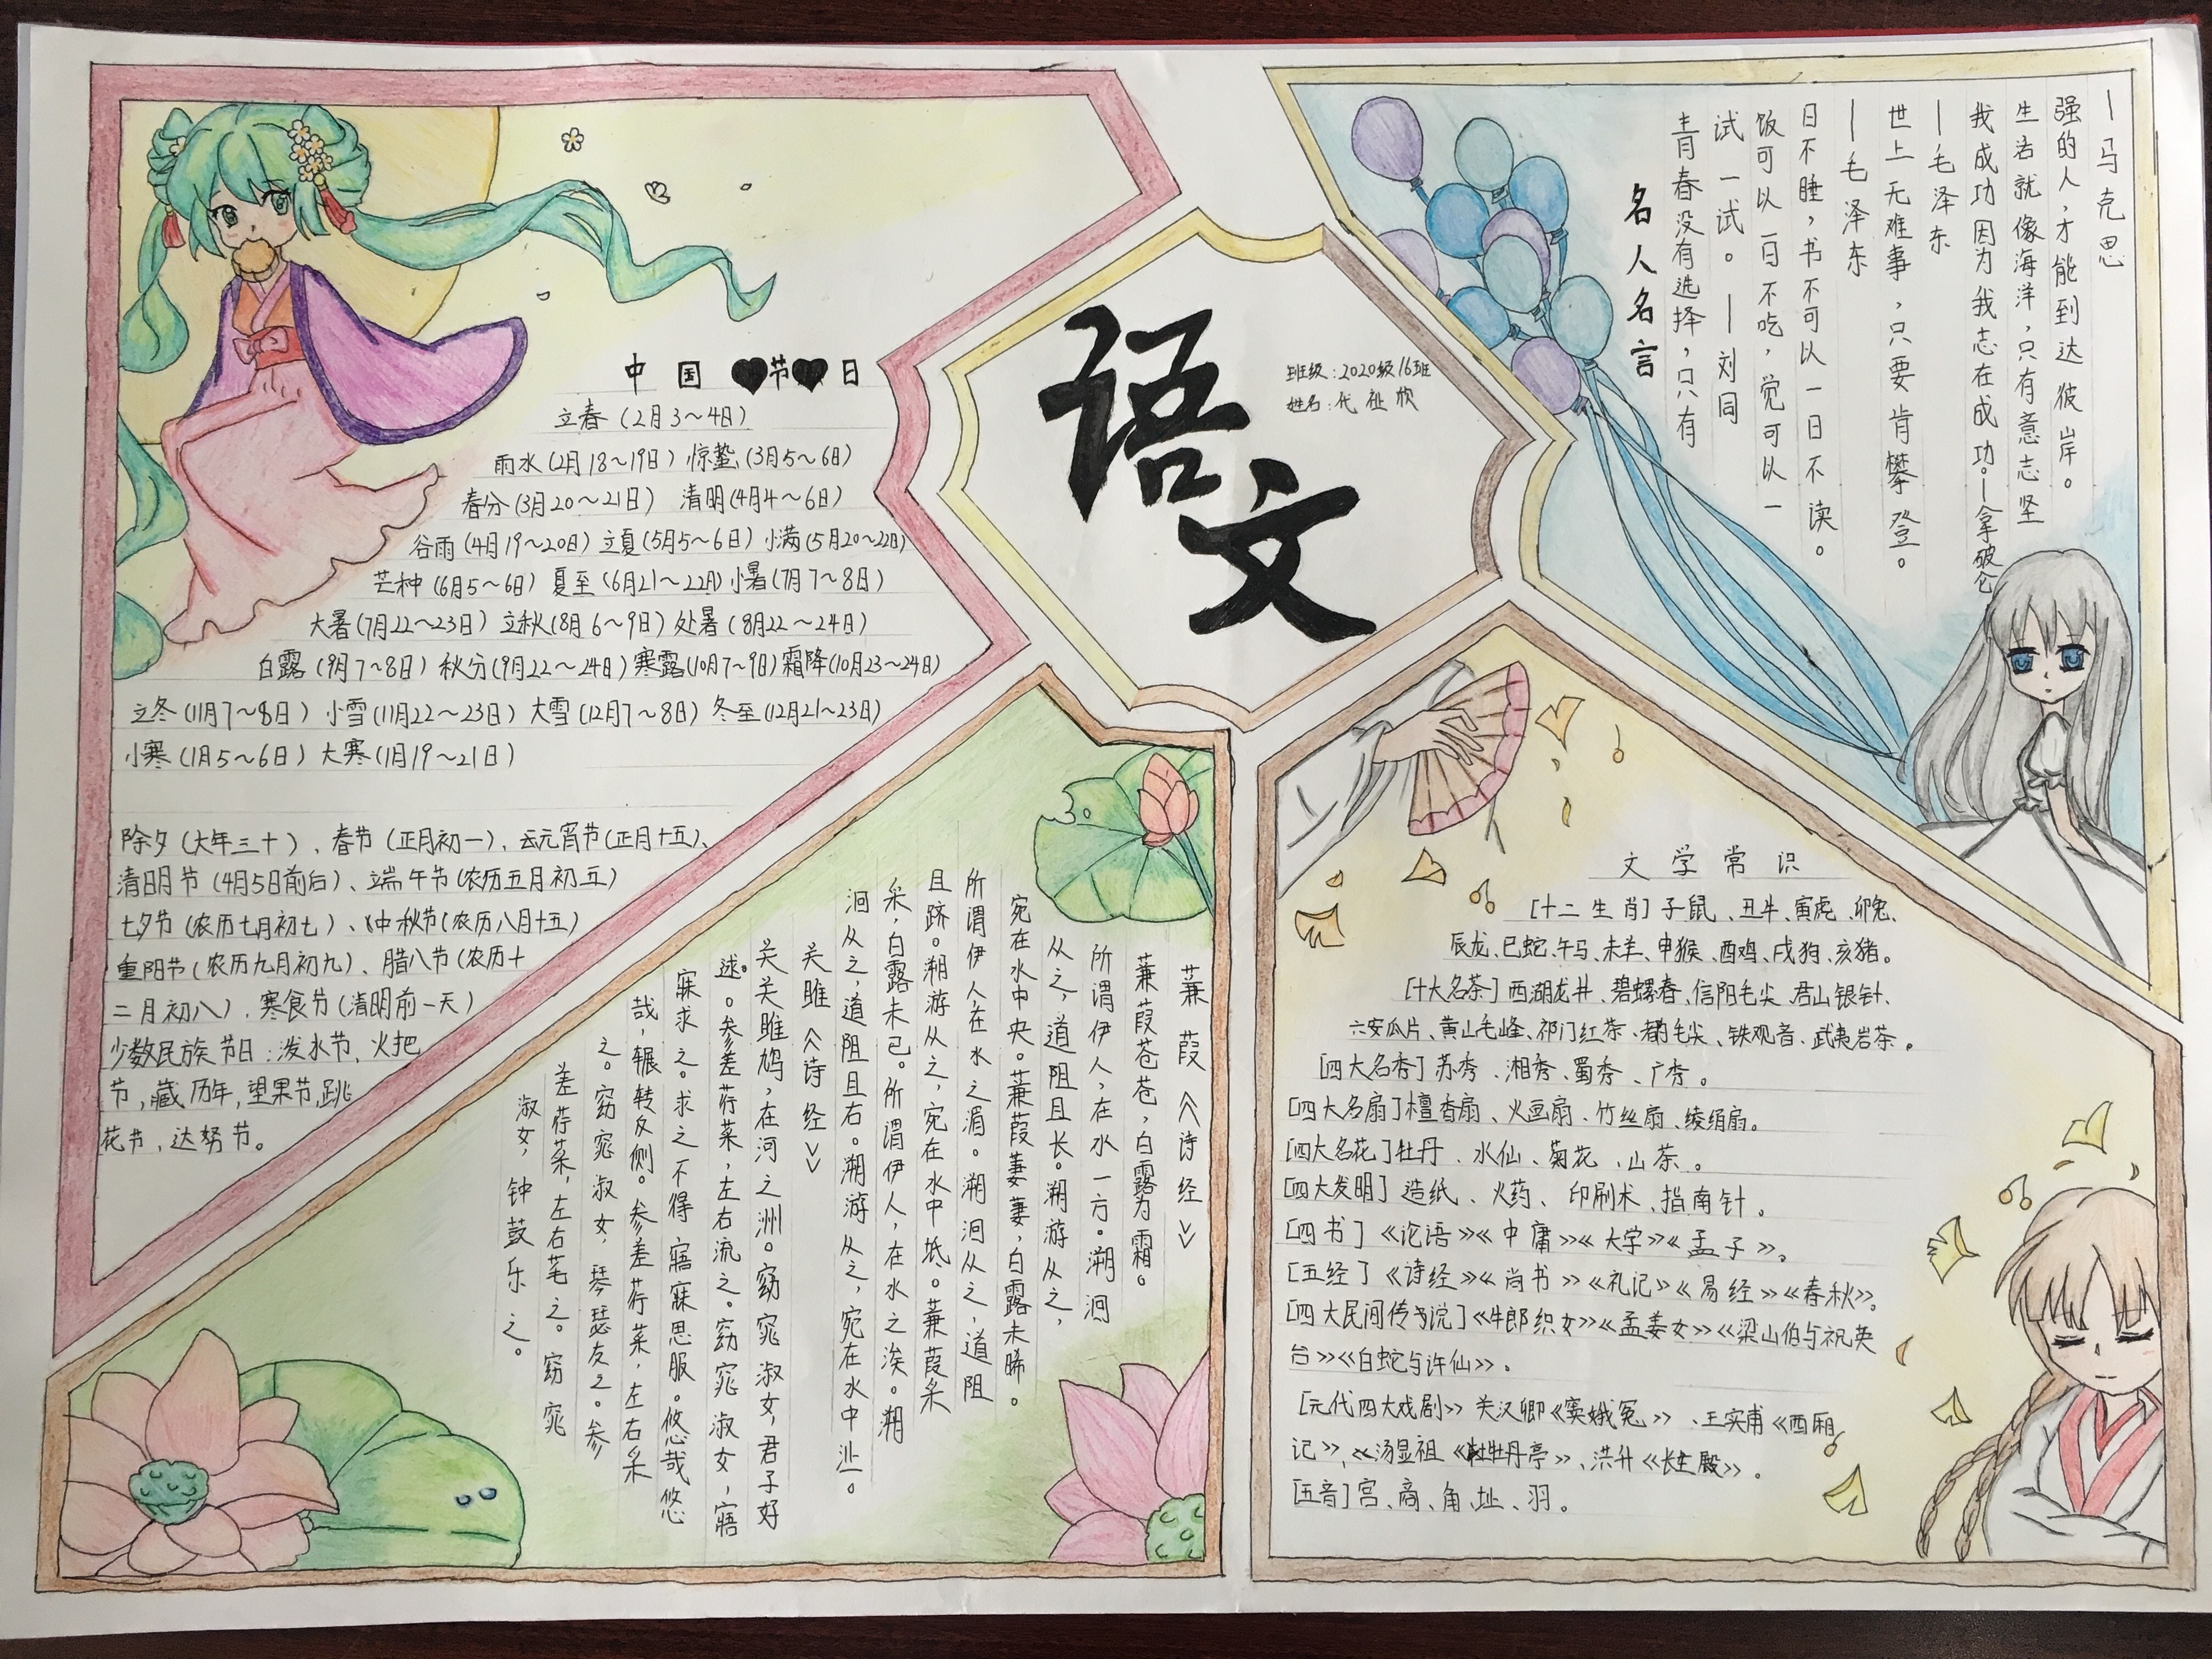 中国节日
立春(2月3~4日)
雨水(2月18~19日) 惊蛰(3月5~6日)
春分(3月20~21日) 清明(4月4~6日)
谷雨(4月19~20日) 立夏(5月5~6日) 小满(5月20~22日)
芒种(6月5~6日) 夏至(6月21~22日) 小暑(7月7~8日)
大暑(7月22~23日) 立秋(8月6~9日) 处暑(8月22~24日)
白露(9月7~8日) 秋分(9月22~24日) 寒露(10月7~9日) 霜降(10月23~24日)
立冬(11月7~8日) 小雪(11月22~23日) 大雪(12月7~8日) 冬至(12月21~23日)
小寒(1月5~6日) 大寒(1月19~21日)
除夕(大年三十)、春节(正月初一)、元宵节(正月十五)、
清明节(4月5日前后)、端午节(农历五月初五)
七夕节(农历七月初七)、中秋节(农历八月十五)
重阳节(农历九月初九)、腊八节(农历十
二月初八)、寒食节(清明前一天)
少数民族节日:泼水节,火把
节,藏历年,望果节,跳
花节,达努节。
语文
班级:2020级16班
姓名:代祉欣
名人名言
青春没有选择，只有
试一试。—刘同
饭可以一日不吃，觉可以一
日不睡，书不可以一日不读。
—毛泽东
世上无难事，只要肯攀登。
—毛泽东
我成功因为我志在成功。—拿破仑
生活就像海洋，只有意志坚
强的人，才能到达彼岸。
—马克思
蒹葭《诗经》
蒹葭苍苍，白露为霜。
所谓伊人，在水一方。溯洄
从之，道阻且长。溯游从之，
宛在水中央。蒹葭萋萋，白露未晞。
所谓伊人，在水之湄。溯洄从之，道阻
且跻。溯游从之，宛在水中坻。蒹葭采
采，白露未已。所谓伊人，在水之涘。溯
洄从之，道阻且右。溯游从之，宛在水中沚。
关雎《诗经》
关关雎鸠，在河之洲。窈窕淑女，君子好
逑。参差荇菜，左右流之。窈窕淑女，寤
寐求之。求之不得，寤寐思服。悠哉悠
哉，辗转反侧。参差荇菜，左右采
之。窈窕淑女，琴瑟友之。参
差荇菜，左右芼之。窈窕
淑女，钟鼓乐之。
文学常识
[十二生肖]子鼠、丑牛、寅虎、卯兔、
辰龙、巳蛇、午马、未羊、申猴、酉鸡、戌狗、亥猪。
[十大名茶]西湖龙井、碧螺春、信阳毛尖、君山银针、
六安瓜片、黄山毛峰、祁门红茶、都匀毛尖、铁观音、武夷岩茶。
[四大名秀]苏秀、湘秀、蜀秀、广秀。
[四大名扇]檀香扇、火画扇、竹丝扇、绫绢扇。
[四大名花]牡丹、水仙、菊花、山茶。
[四大发明]造纸、火药、印刷术、指南针。
[四书]《论语》《中庸》《大学》《孟子》。
[五经]《诗经》《尚书》《礼记》《易经》《春秋》。
[四大民间传说]《牛郎织女》《孟姜女》《梁山伯与祝英
台》《白蛇与许仙》。
[元代四大戏剧》关汉卿《窦娥冤》、王实甫《西厢
记》、汤显祖《牡丹亭》、洪升《长生殿》。
[五音]宫、商、角、址、羽。